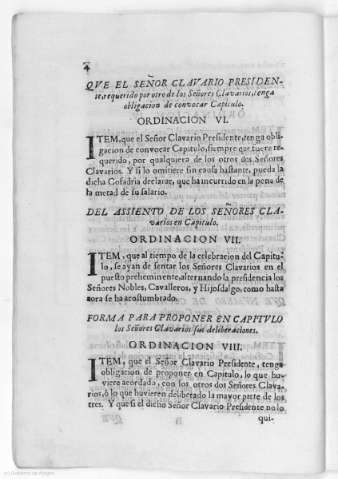 4
QVE EL SEÑOR CLAVARIO PRESIDEN-
te, requerido por otro de los Señores Clavarios, tenga
obligacion de convocar Capitulo.
ORDINACION VI.
ITEM, que el Señor Clavario Presidente, tenga obli-
gacion de convocar Capitulo, siempre que fuere re-
querido, por qualquiera de los otros dos Señores
Clavarios. Y si lo omitiere sin causa bastante, pueda la
dicha Cofadria declarar, que ha incurrido en la pena de
la metad de su salario.
DEL ASSIENTO DE LOS SEÑORES CLA-
varios en Capitulo.
ORDINACION VII.
ITEM, que al tiempo de la celebracion del Capitu-
lo, se ayan de sentar los Señores Clavarios en el
puesto preheminente, alternando la presidencia los
Señores Nobles, Cavalleros, y Hijosdalgo, como hasta
aora se ha acostumbrado.
FORMA PARA PROPONER EN CAPITVLO
los Señores Clavarios sus deliberaciones.
ORDINACION VIII.
ITEM, que el Señor Clavario Presidente, tenga
obligacion de proponer en Capitulo, lo que hu-
viere acordado, con los otros dos Señores Clava-
rios, ò lo que huvieren deliberado la mayor parte de los
tres. Y que si el dicho Señor Clavario Presidente no lo
qui-
(c) Gobierno de Aragón